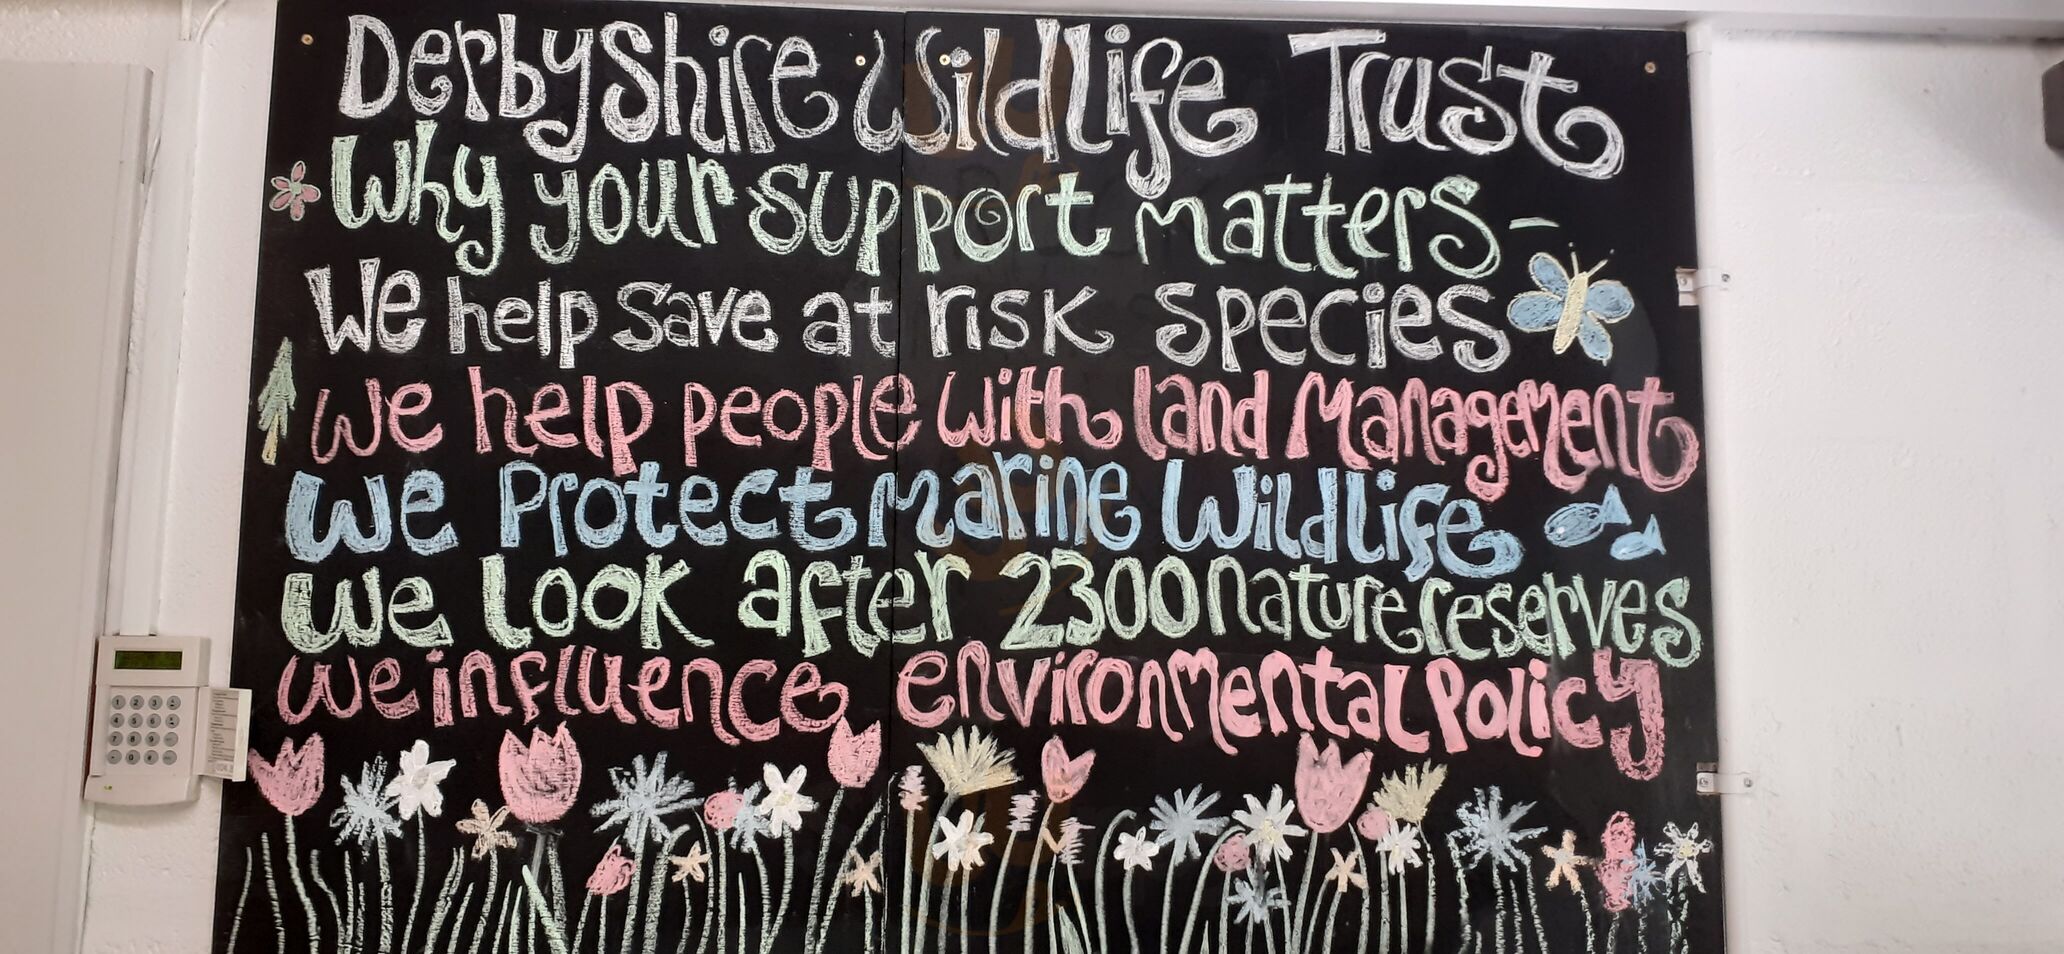 Derbyshire Wildlife Trust
Why your support matters -
We help save at risk species
We help people with land Management
We Protect Marine Wildlife
We look after 2300 nature reserves
We influence environmental Policy